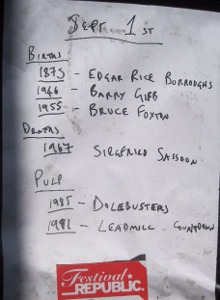 SEPT. 1ST
BIRTHS
1875 - EDGAR RICE BURROUGHS
1946 - BARRY GIBB
1955 - BRUCE FOXTON
DEATHS
1967 SIEGFRIED SASSOON
PULP
1985 - DOLEBUSTERS
1991 - LEADMILL, COUNTDOWN
Festival
REPUBLIC.